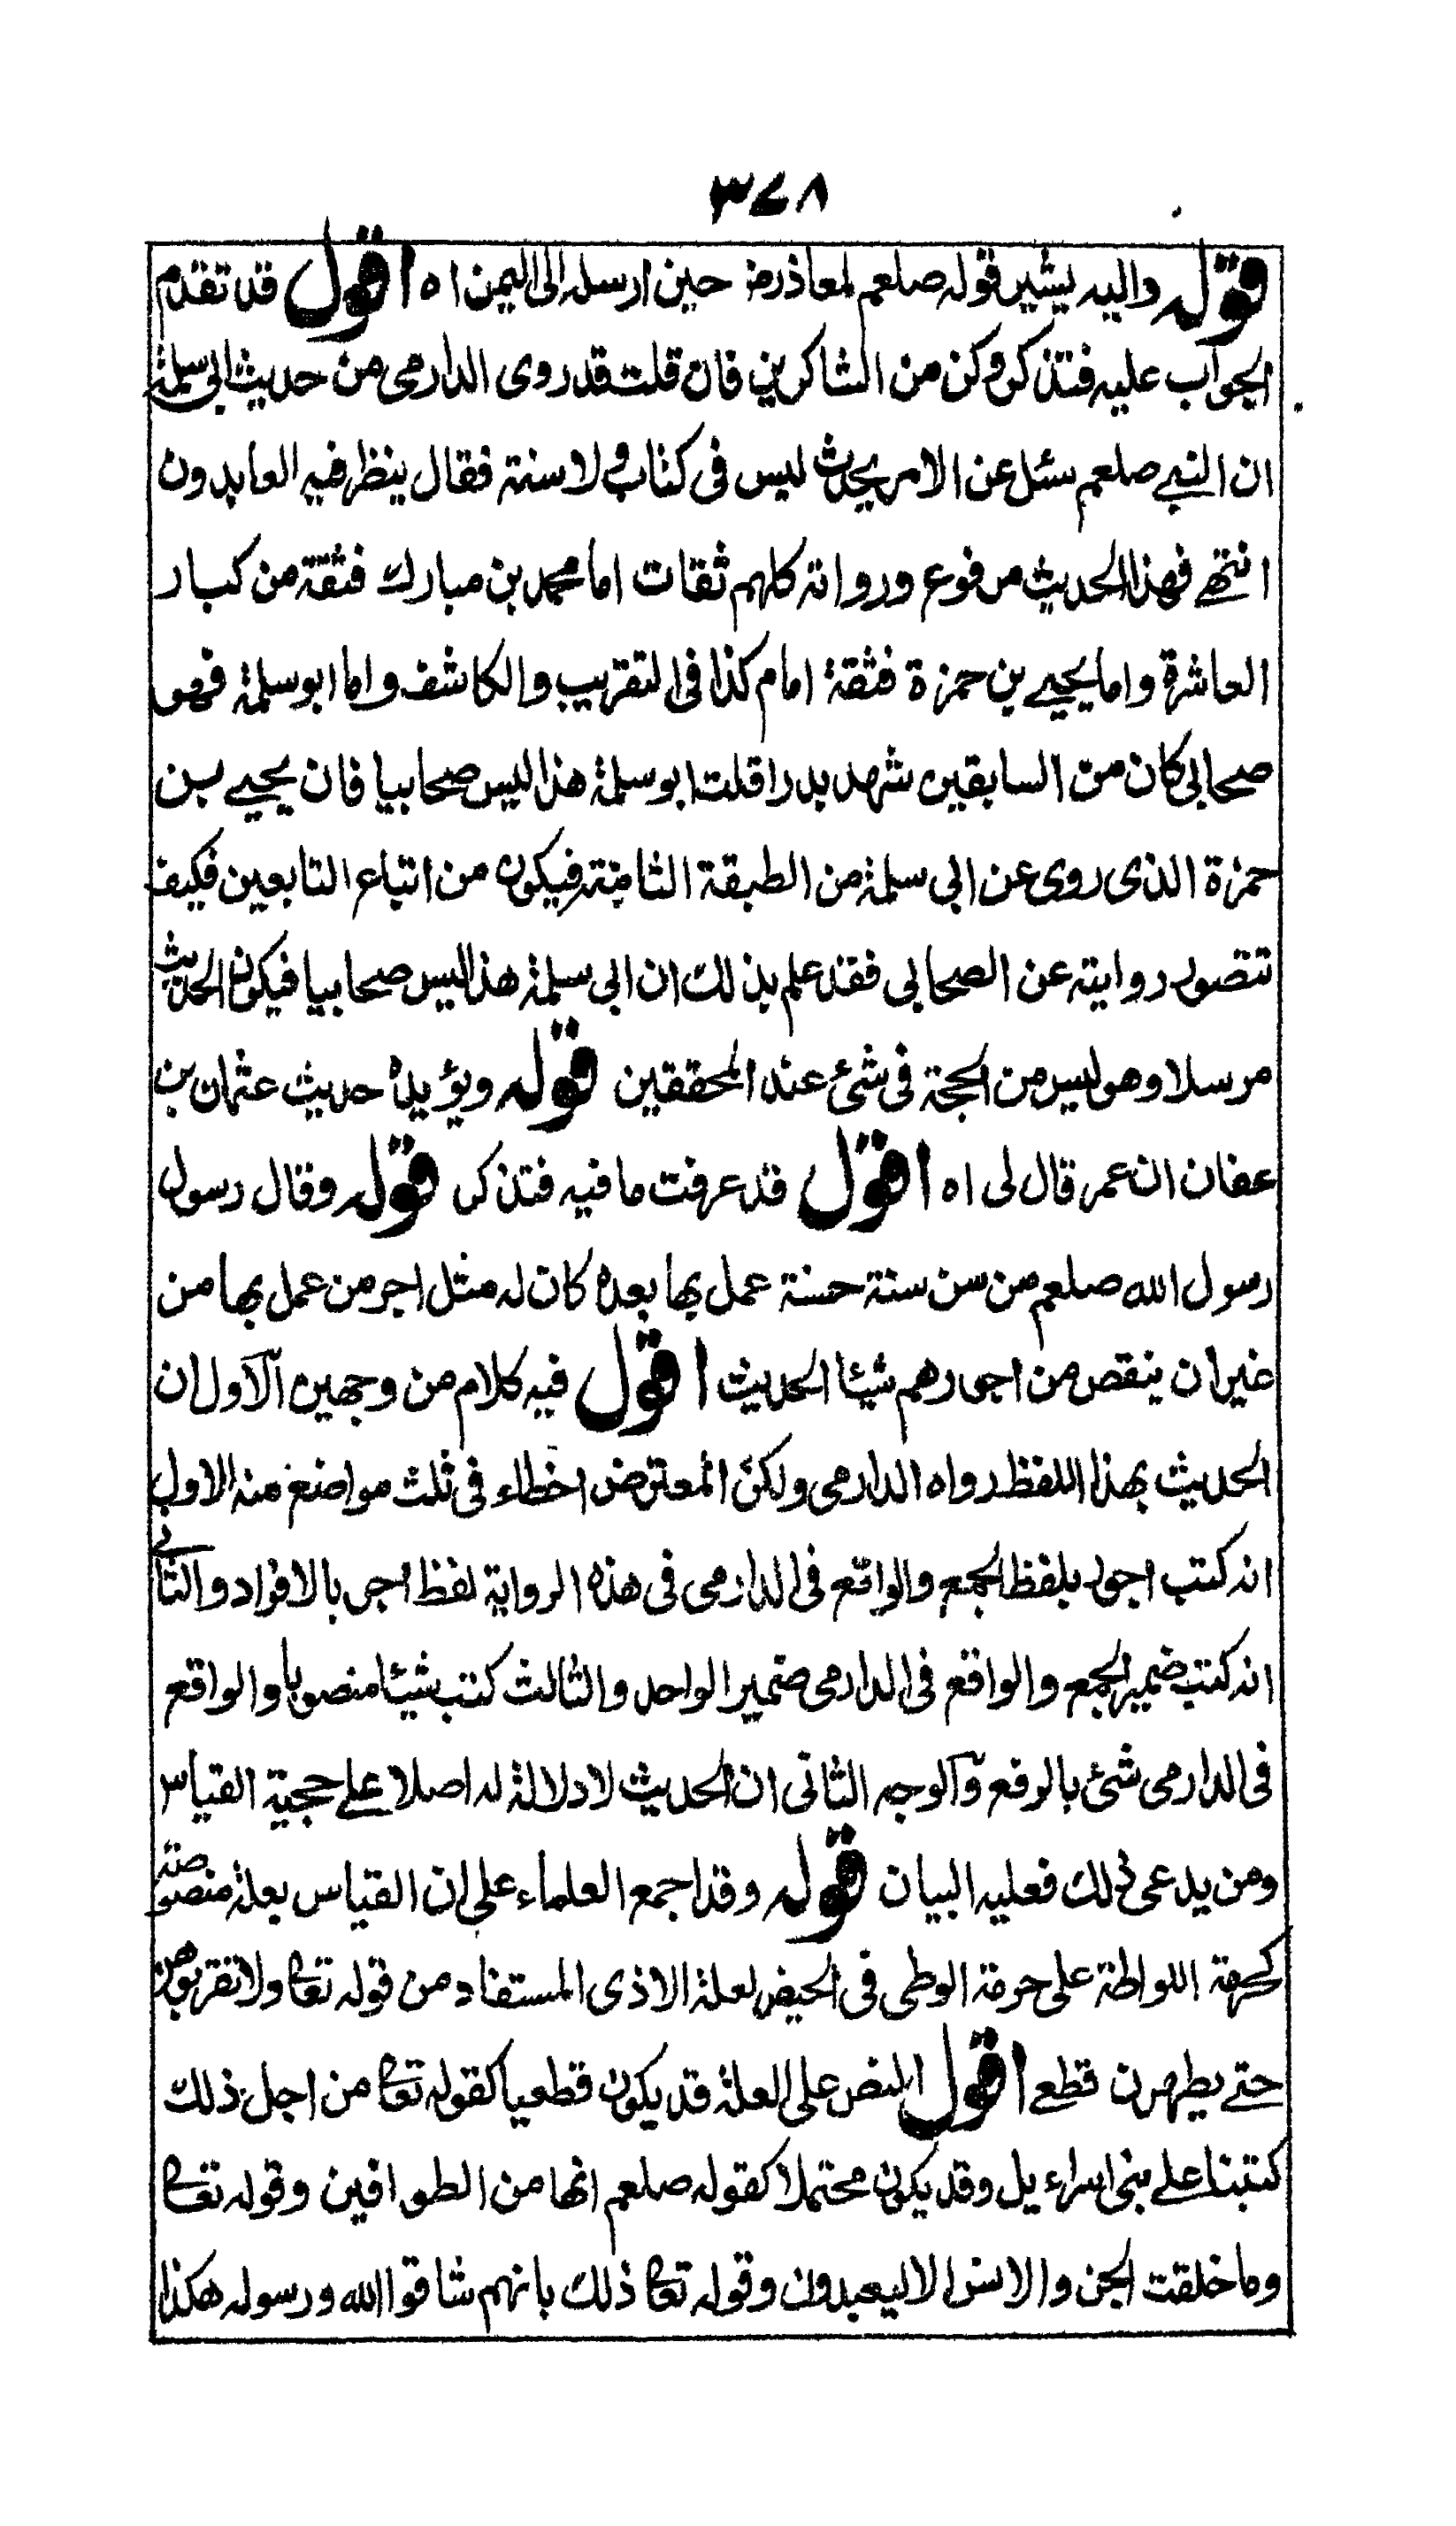 ٣٧٨
قوله واليه يشير قوله صلعم لمعاذ رضـ حين ارسله الى اليمن اه اقول قد تقدم
الجواب عليه فتذكر وكن من الشاكرين فان قلت قد روى الدارمى من حديث ابى سلمة
ان النبے صلعم سئل عن الامر يحدث ليس فى كتاب ولا سنة فقال ينظر فيه العابدون
انتهے فهذا الحديث مرفوع ورواته كلهم ثقات اما محمد بن مبارك فثقة من كبار
العاشرة واما يحيے بن حمزة فثقة امام كذا فى التقريب والكاشف واما ابو سلمة فهو
صحابى كان من السابقين شهد بدرا قلت ابو سلمة هذا ليس صحابيا فان يحيے بن
حمزة الذى روى عن ابى سلمة من الطبقة الثامنة فيكون من اتباع التابعين فكيف
تتصور روايته عن الصحابى فقد علم بذلك ان ابى سلمة هذا ليس صحابيا فيكون الحديث
مرسلا وهو ليس من الحجة فى شئ عند المحققين قوله ويؤيده حديث عثمان بن
عفان ان عمر قال لى اه اقول قد عرفت ما فيه فتذكر قوله وقال رسول
رسول الله صلعم من سن سنة حسنة عمل بها بعده كان له مثل اجر من عمل بها من
غير ان ينقص من اجورهم شيئا الحديث اقول فيه كلام من وجهين الآول ان
الحديث بهذا اللفظ رواه الدارمى ولكن المعترض اخطاء فى ثلث مواضع منه الاول
انه كتب اجور بلفظ الجمع والواقع فى الدارمى فى هذه الرواية لفظ اجر بالافراد والثانے
انه كتب ضمير الجمع والواقع فى الدارمى ضمير الواحد والثالث كتب شيئا منصوبا والواقع
فى الدارمى شئ بالرفع وآلوجه الثانى ان الحديث لا دلالة له اصلا علے حجية القياس
ومن يدعى ذلك فعليه البيان قوله وقد اجمع العلماء على ان القياس بعلة منصوصة
كحرمة اللواطة على حرمة الوطى فى الحيض لعلة الاذى المستفاد من قوله تعا ولا تقربوهن
حتے يطهرن قطعے اقول النص على العلة قد يكون قطعيا كقوله تعا من اجل ذلك
كتبنا علے بنى اسراءيل وقد يكون محتملا كقوله صلعم انها من الطوافين وقوله تعا
وما خلقت الجن والانس الا ليعبدون وقوله تعا ذلك بانهم شاقوا الله ورسوله هكذا